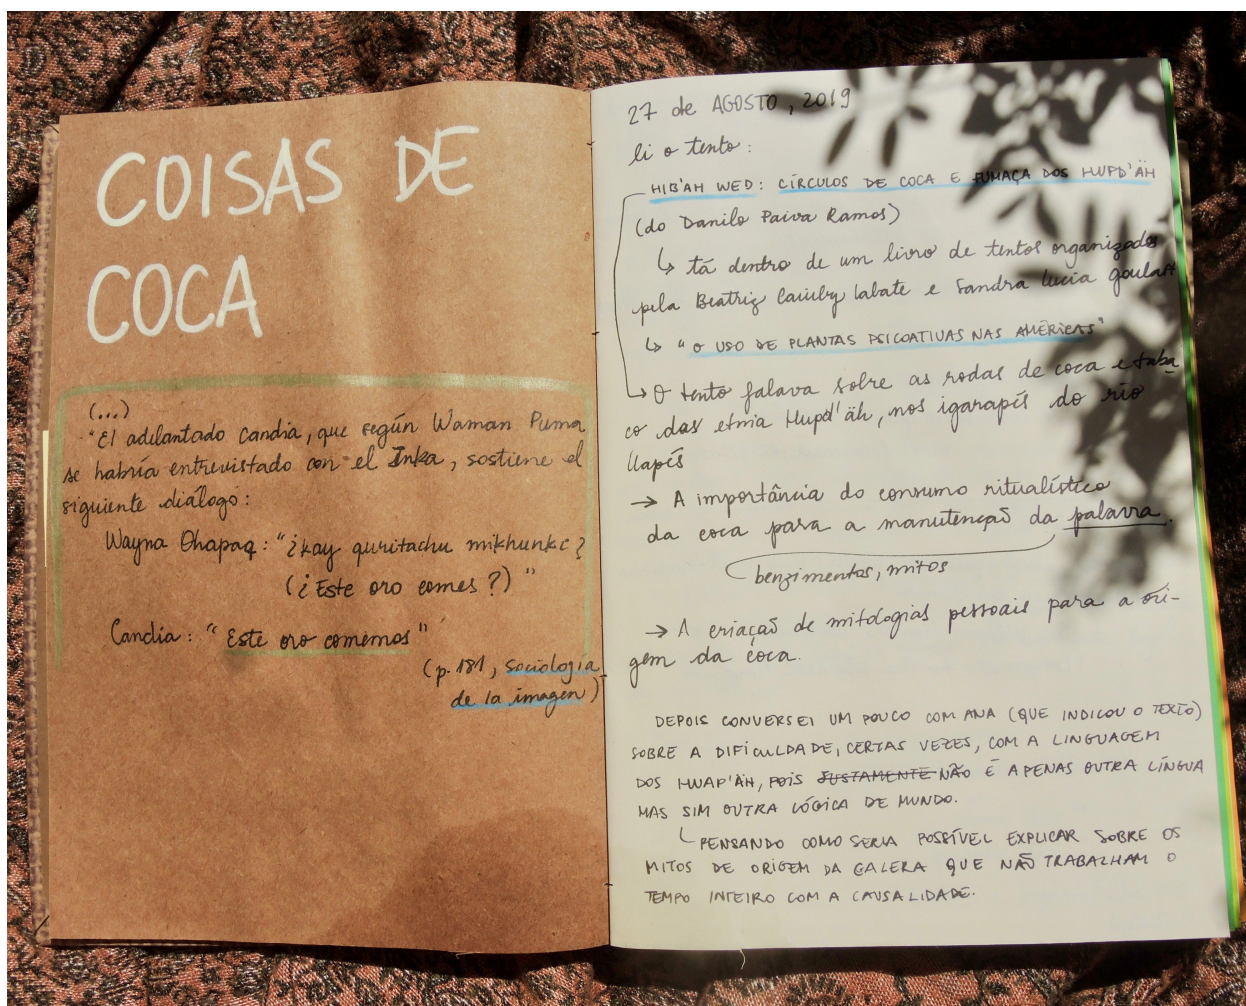 COISAS DE
COCA
(...)
"El adelantado Candia, que según Waman Puma
se habría entrevistado con el Inka, sostiene el
siguiente diálogo:
Wayna Qhapaq: "¿kay quritachu mikhunki?
(¿Este oro comes?)"
Candia: "Este oro comemos"
(p. 181, sociología
de la imagen)
27 de AGOSTO, 2019
li o texto:
HIB'AH WED: CÍRCULOS DE COCA E FUMAÇA DOS HUPD'ÄH
(do Danilo Paiva Ramos)
↳ tá dentro de um livro de textos organizados
pela Beatriz Cauiby Labate e Sandra Lucia Goulart
↳ "O USO DE PLANTAS PSICOATIVAS NAS AMÉRICAS"
→ O texto falava sobre as rodas de coca e taba
co das etnia Hupd'äh, nos igarapés do rio
Uapés
→ A importância do consumo ritualístico
da coca para a manutenção da palavra.
benzimentos, mitos
→ A criação de mitologias pessoais para a ori-
gem da coca.
DEPOIS CONVERSEI UM POUCO COM ANA (QUE INDICOU O TEXTO)
SOBRE A DIFICULDADE, CERTAS VEZES, COM A LINGUAGEM
DOS HWAP'ÄH, POIS JUSTAMENTE NÃO É APENAS OUTRA LÍNGUA
MAS SIM OUTRA LÓGICA DE MUNDO.
↳ PENSANDO COMO SERIA POSSÍVEL EXPLICAR SOBRE OS
MITOS DE ORIGEM DA GALERA QUE NÃO TRABALHAM O
TEMPO INTEIRO COM A CAUSALIDADE.